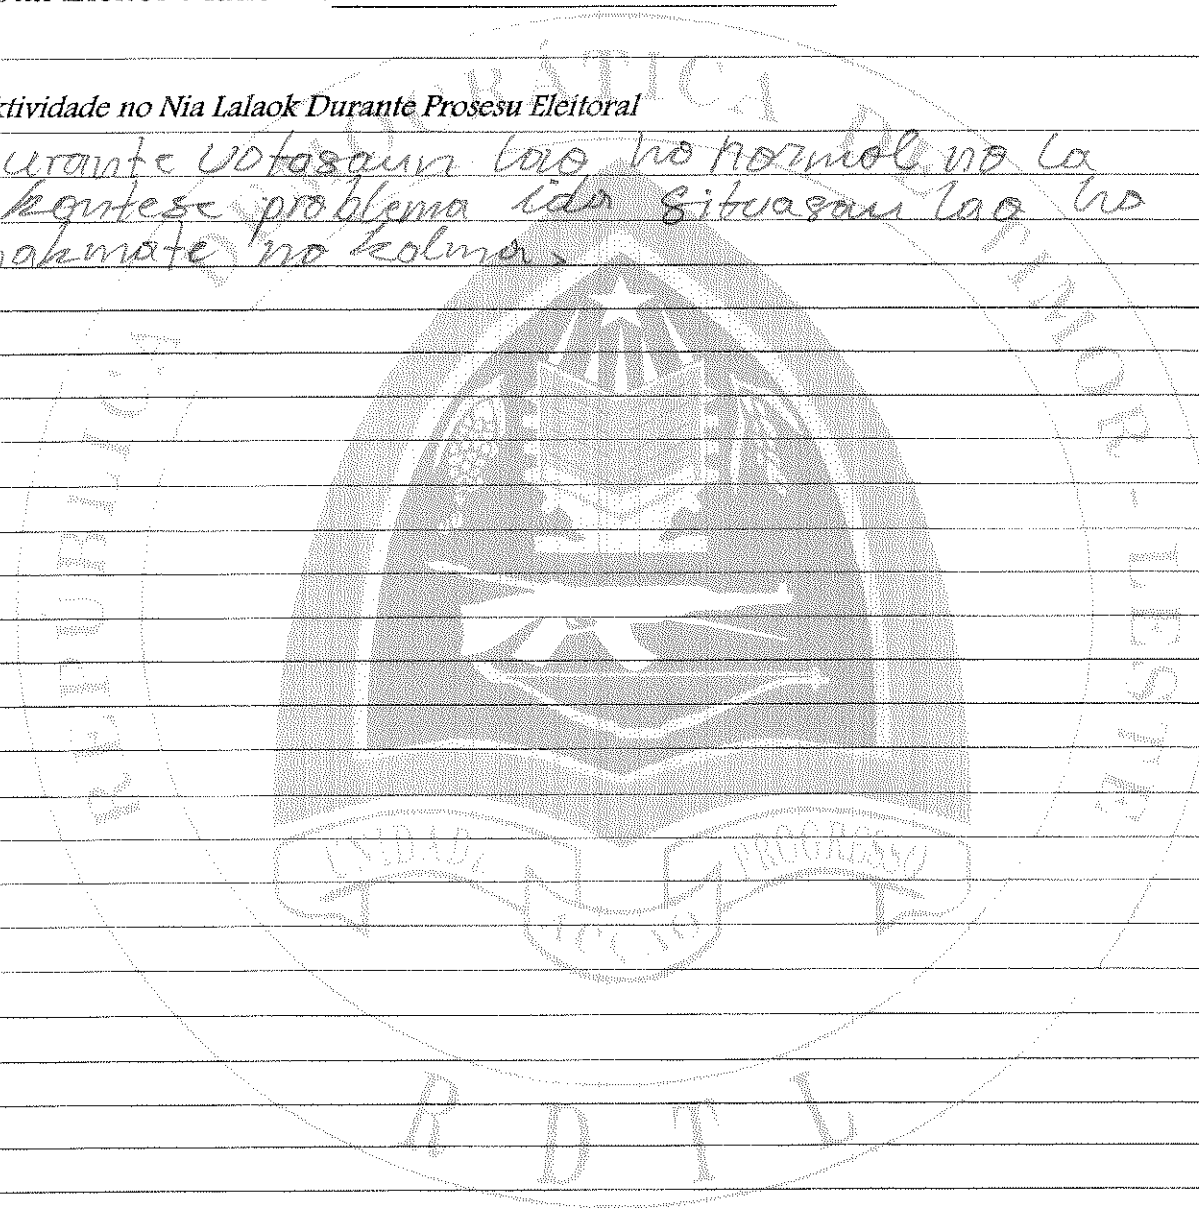 ktividade no Nia Lalaok Durante Prosesu Eleitoral
urante votasaun lao ho normal no la
kontese problema ida situasau lao ho
hakmate no kalma.
REPÚBLICA DEMOCRÁTICA DE TIMOR-LESTE
UNIDADE ACÇÃO PROGRESSO
RDTL